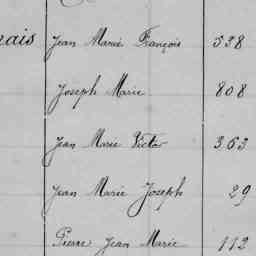 rais Jean Marie François 538
Joseph Marie 808
Jean Marie Victor 363
Jean Marie Joseph 29
Pierre Jean Marie 112